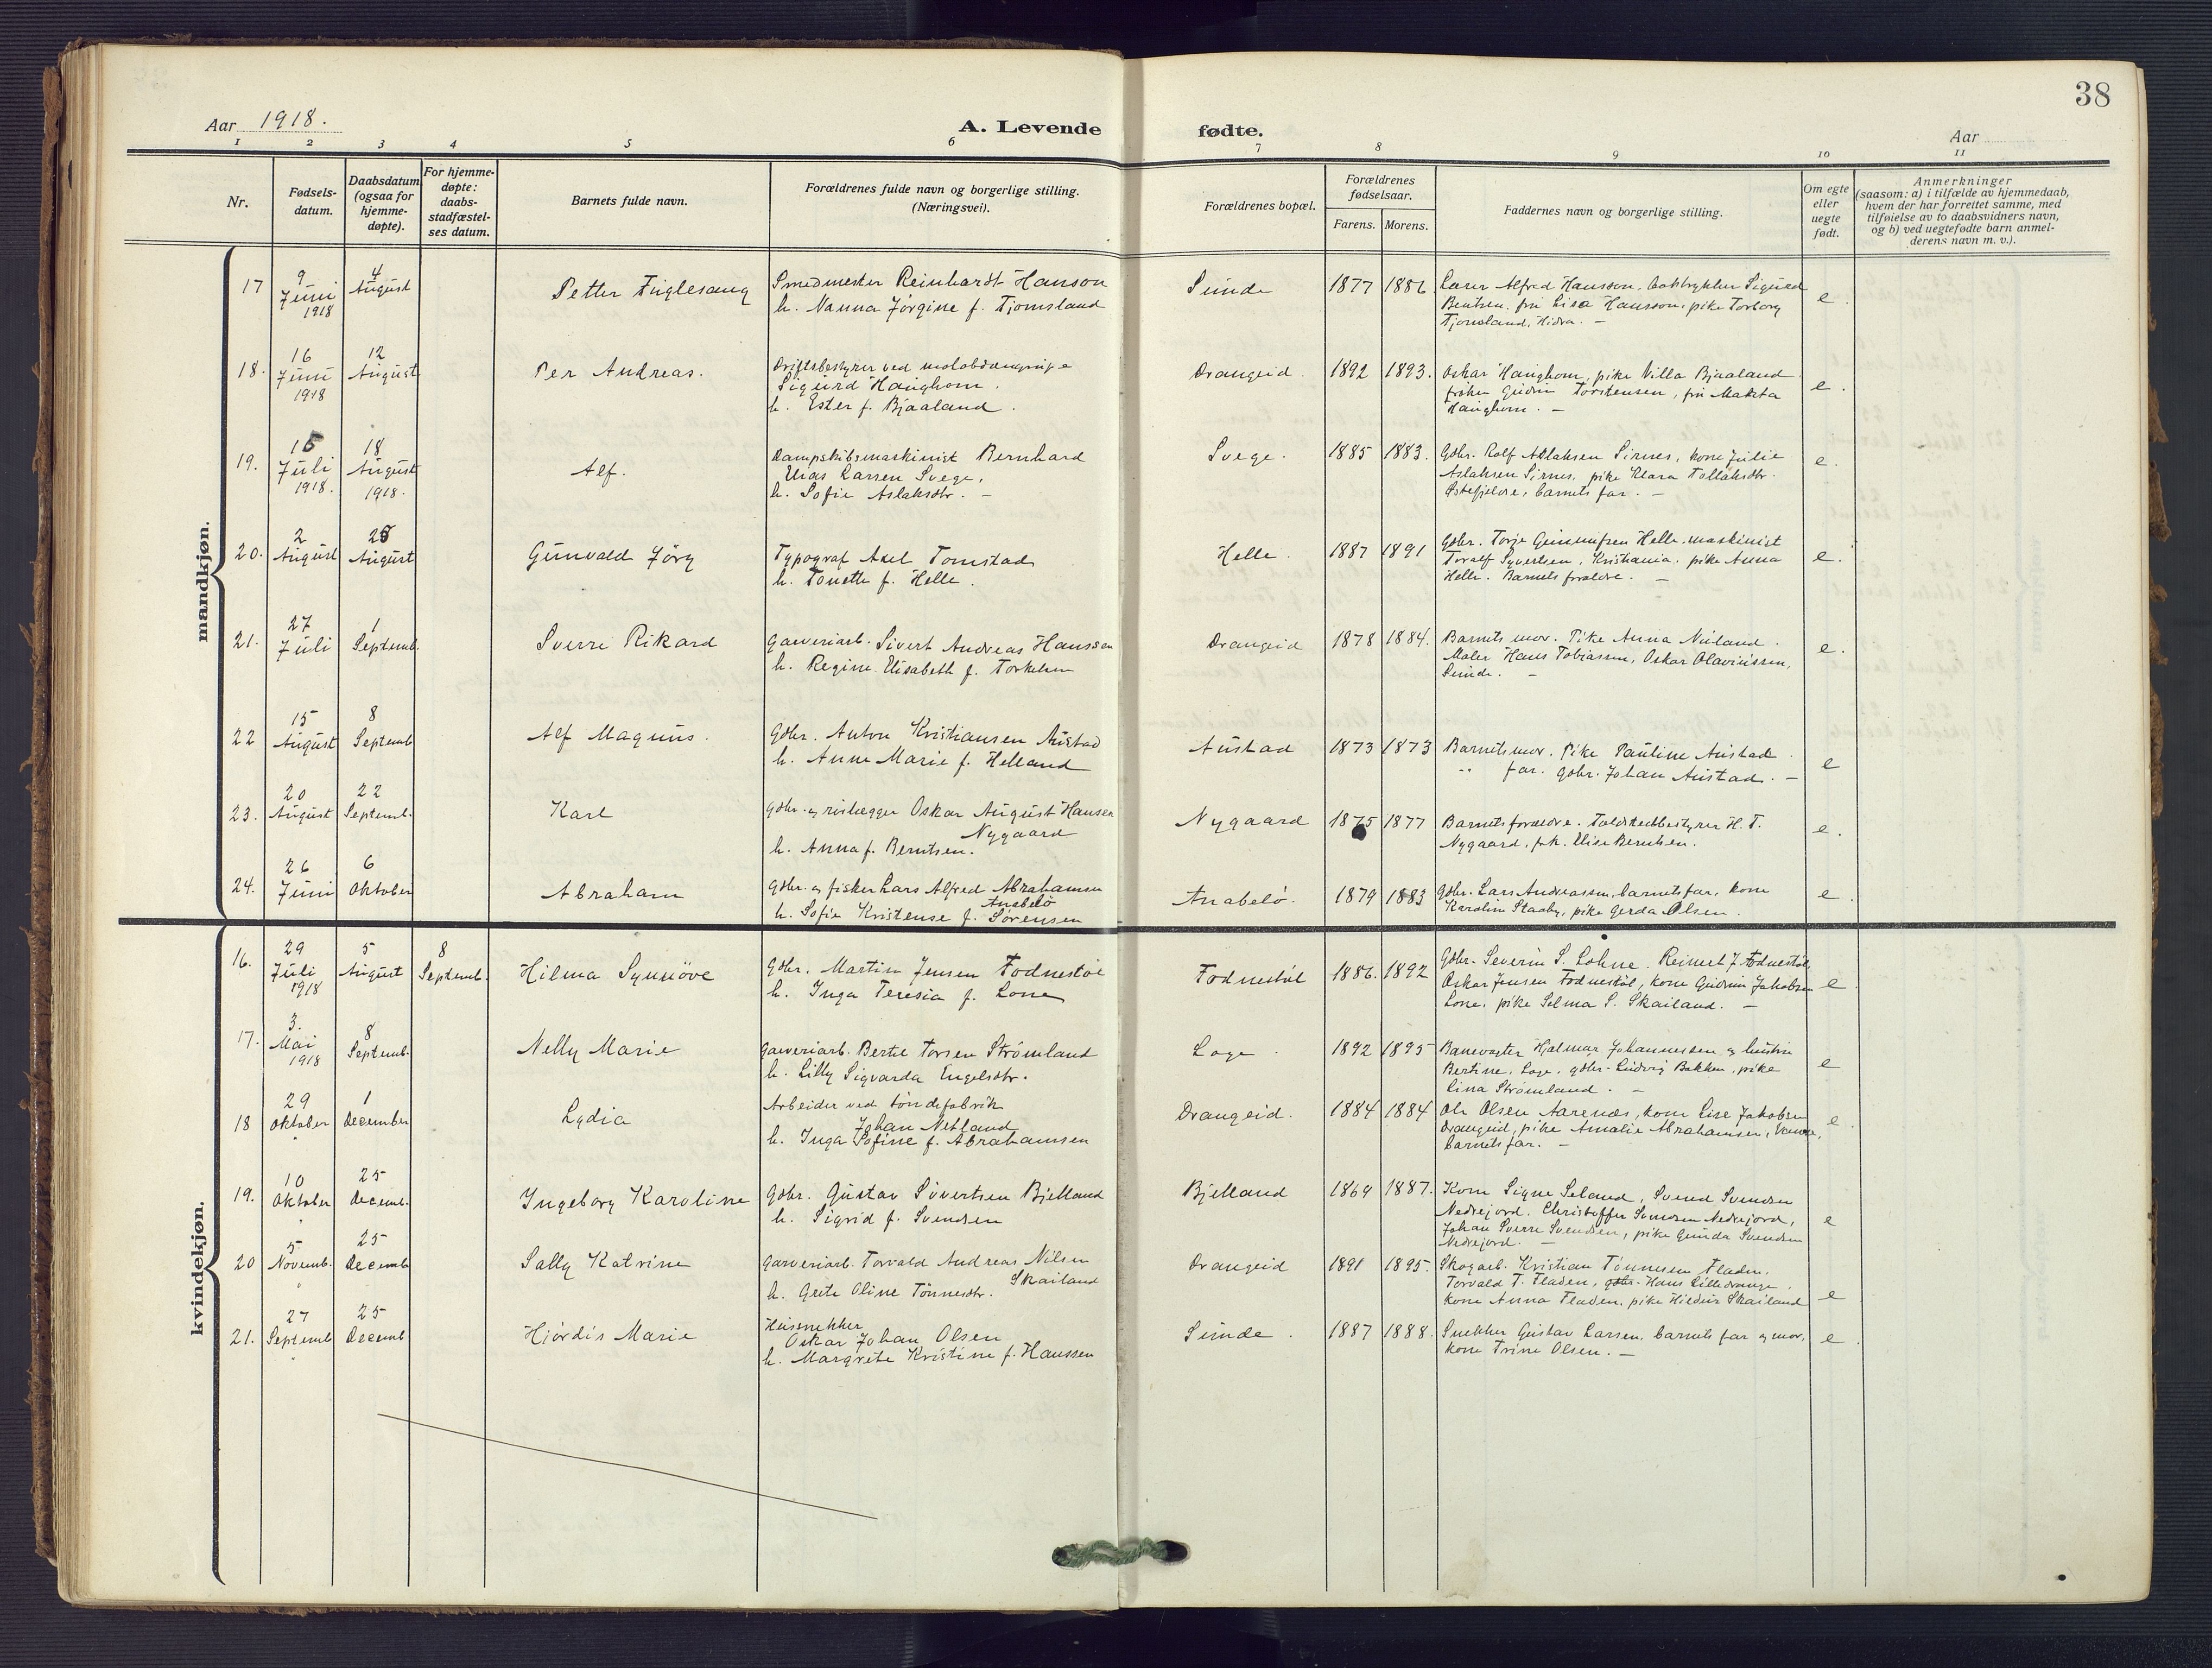 38
Aar 1918.
A. Levende fødte.
Aar
1 2 3 4 5 6 7 8 9 10 11
Nr.
Fødsels-
datum.
Daabsdatum
(ogsaa for
hjemme-
døpte).
For hjemme-
døpte:
daabs-
stadfæstel-
ses datum.
Barnets fulde navn.
Forældrenes fulde navn og borgerlige stilling.
(Næringsvei).
Forældrenes bopæl.
Forældrenes
fødselsaar.
Farens. Morens.
Faddernes navn og borgerlige stilling.
Om egte
eller
uegte
født.
Anmerkninger
(saasom: a) i tilfælde av hjemmedaab,
hvem der har forrettet samme, med
tilføielse av to daabsvidners navn,
og b) ved uegtefødte barn anmel-
derens navn m. v.).
mandkjøn.
17 9 Juni 1918 4 August Petter Fuglesang
Smedmester Reinhardt Hanson
h. Nanna Jørgine f. Tjomsland
Sunde 1877 1886
Alfred Hansson, Sigurd
Bentsen, fru Lisa Hansson, pike Torborg
Tjomsland, Hidra. —
e.
18. 16 Juni 1918 12 August Per Andreas.
Driftsbestyrer ved
Sigurd Haughom.
h. Ester f. Bjaaland.
Drangeid. 1892 1893.
Oskar Haughom, pike Villa Bjaaland
frøken Gudrun Torstensen, fru Makta
Haughom. —
e.
19. 15 Juli 1918. 18 August 1918. Alf.
Dampskibsmaskinist Bernhard
Elias Larsen Svege,
h. Sofie Aslaksdtr. —
Svege. 1885 1883.
Gdbr. Rolf Aslaksen Sirnes, kone Julie
Aslaksen Sirnes, pike Klara Tollaksdtr.
barnets far. —
e.
20. 2 August 25 August Gunvald Jørg
Typograf Axel Tomstad
h. Tonette f. Helle.
Helle. 1887 1891
Gdbr. Torje Gunnufsen Helle, maskinist
Toralf Syvertsen, Kristiania, pike Anna
Helle. Barnets forældre. —
e.
21. 27 Juli 1 Septemb. Sverre Rikard
Garveriarb. Sivert Andreas Hanssen
h. Regine Elisabeth f. Torkelsen
Drangeid 1878 1884.
Barnets mor. Pike Anna Nuland.
Maler Hans Tobiassen, Oskar Olaviussen,
Sunde. —
e.
22 15 August 8 Septemb Alf Magnus.
Gdbr. Anton Kristiansen Austad
h. Anne Marie f. Helland
Austad 1873 1873
Barnets mor. Pike Pauline Austad.
" far. gdbr. Johan Austad. —
e
23. 20 August 22 Septemb. Karl
Gdbr. og Oskar August Hansen
Nygaard
h. Anna f. Berntsen.
Nygaard 1875 1877
Barnets forældre. Toldstedbestyrer H. T.
Nygaard, frk. Elise Berntsen.
e.
24. 26 Juni 6 Oktober Abraham
Gdbr. og fisker Lars Alfred Abrahamsen
Anabelø
h. Sofie Kristense f. Sørensen
Anabelø. 1879 1883
Gdbr. Lars Andreassen, barnets far, kone
Karolin Staaby, pike Gerda Olsen.
e.
kvindekjøn.
16. 29 Juli 1918 5 August 8 Septemb. Hilma Synnøve
Gdbr. Martin Jensen Fodnestøl
h. Inga Teresia f. Lone
Fodnestøl 1886. 1892
Gdbr. Severin S. Lohne. Reinert J Fodnestøl,
Oskar Jensen Fodnestøl, kone Gudrun Jakobsen
Lone, pike Selma S. Skailand. —
e.
17. 3. Mai 1918 8 Septemb. Nelly Marie
Garveriarb. Bertil Torsen Strømland
h. Lilly Sigvarda Engelsdtr.
Loge. 1892 1895
Banevogter Hjalmar Johannessen og hustru
Bertine, Loge, gdbr. Ludvig Bakken, pike
Lina Strømland. —
e
18 29 Oktober 1 December Lydia
Arbeider ved tøndefabrik
Johan Netland
h. Inga Sofine f. Abrahamsen
Drangeid. 1884 1884
Ole Olsen Aarenæs, kone Lise Jakobsen
Drangeid, pike Amalie Abrahamsen,
barnets far. —
e.
19. 10 Oktober 25 Decemb. Ingeborg Karoline
Gdbr. Gustav Sivertsen Bjelland
h. Sigrid f. Svendsen
Bjelland 1869 1887.
Kone Signe Seland, Svend Svendsen
Nedrejord. Christoffer Svendsen Nedrejord,
Johan Sverre Svendsen, pike Gunda Svendsen
Nedrejord. —
e
20 5 Novemb. 25 Decemb Sally Katrine
Garveriarb. Torvald Andreas Nilsen
Skailand
h. Grete Oline Tønnesdtr.
Drangeid 1891 1895.
Skogarb. Kristian Tønnesen Fladen.
Torvald T. Fladen, gdbr. Hans Lilledrange,
kone Anna Fladen, pike Hildur Skailand
e
21. 27 Septemb 25 Decemb Hjørdis Marie
Hussnekker
Oskar Johan Olsen
h. Margrete Kristine f. Hanssen
Sunde. 1887 1888.
Snekker Gustav Larsen, barnets far og mor,
kone Trine Olsen. —
e.